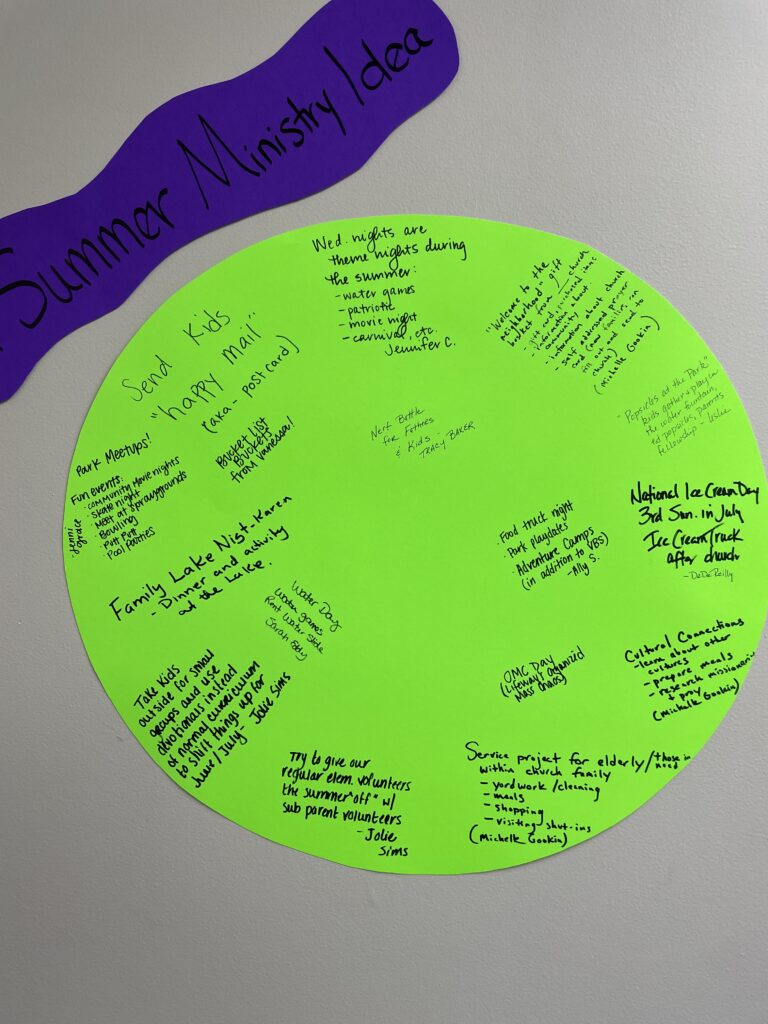 Summer Ministry Idea
Wed. nights are
theme nights during
the summer:
- water games
- patriotic
- movie night
- carnival, etc.
Jennifer C.
"Welcome to the
neighborhood" gift
basket from church
- gift card, purchased items
- information about
community
- information about church
- self addressed prayer
card (new families can
fill out and send to
church)
(Michelle Gookin)
Send Kids
"happy mail"
(aka - postcard)
"Popsicles at the Park"
kids gather & play in
the water fountain,
eat popsicles, parents
fellowship - Leslie
Nerf Battle
for Fathers
& Kids
- TRACY BAKER
Bucket List
Buckets
from Vanessa!
Park Meetups!
Fun events:
· Community Movie nights
· Skate night
· Meet at Spraygrounds
· Bowling
· Putt Putt
· Pool Parties
- Jenni
Grace
National Ice Cream Day
3rd Sun. in July
Ice Cream Truck
after church
- DeDe Reilly
· Food truck night
· Park playdates
· Adventure Camps
(in addition to VBS)
- Ally S.
Family Lake Nist - Karen
- Dinner and activity
at the Lake.
Water Day
Water games
Rent Water Slide
Sarah Eddy
Cultural Connections
- learn about other
cultures
- prepare meals
- research missionaries
+ pray
(Michelle Gookin)
OMC Day
(Lifeway's Organized
Mass Chaos)
Take Kids
outside for small
groups and use
devotionals instead
of normal curriculum
to shift things up for
June/July - Jolie Sims
Try to give our
regular elem. volunteers
the summer "off" w/
sub parent volunteers
- Jolie
Sims
Service project for elderly/those in
need
within church family
- yardwork/cleaning
- meals
- shopping
- visiting shut-ins
(Michelle Gookin)